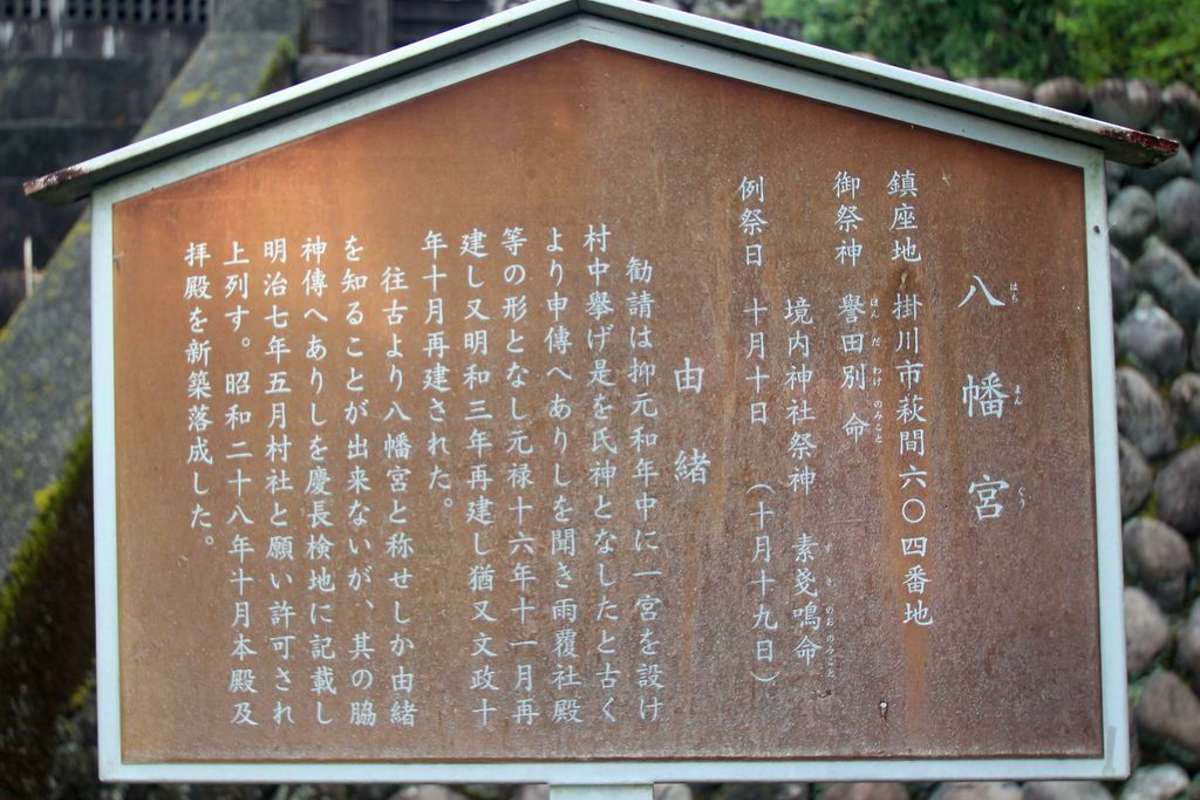 八幡宮
はちまんぐう
鎮座地 掛川市萩間六〇四番地
御祭神 譽田別命
ほんだわけのみこと
境内神社祭神 素戔鳴命
すさのおのみこと
例祭日 十月十日 (十月十九日)
由緒
勧請は抑元和年中に一宮を設け
村中擧げ是を氏神となしたと古く
より申傳へありしを聞き雨覆社殿
等の形となし元禄十六年十一月再
建し又明和三年再建し猶又文政十
年十月再建された。
往古より八幡宮と称せしか由緒
を知ることが出来ないが、其の脇
神傳へありしを慶長検地に記載し
明治七年五月村社と願い許可され
上列す。昭和二十八年十月本殿及
拝殿を新築落成した。